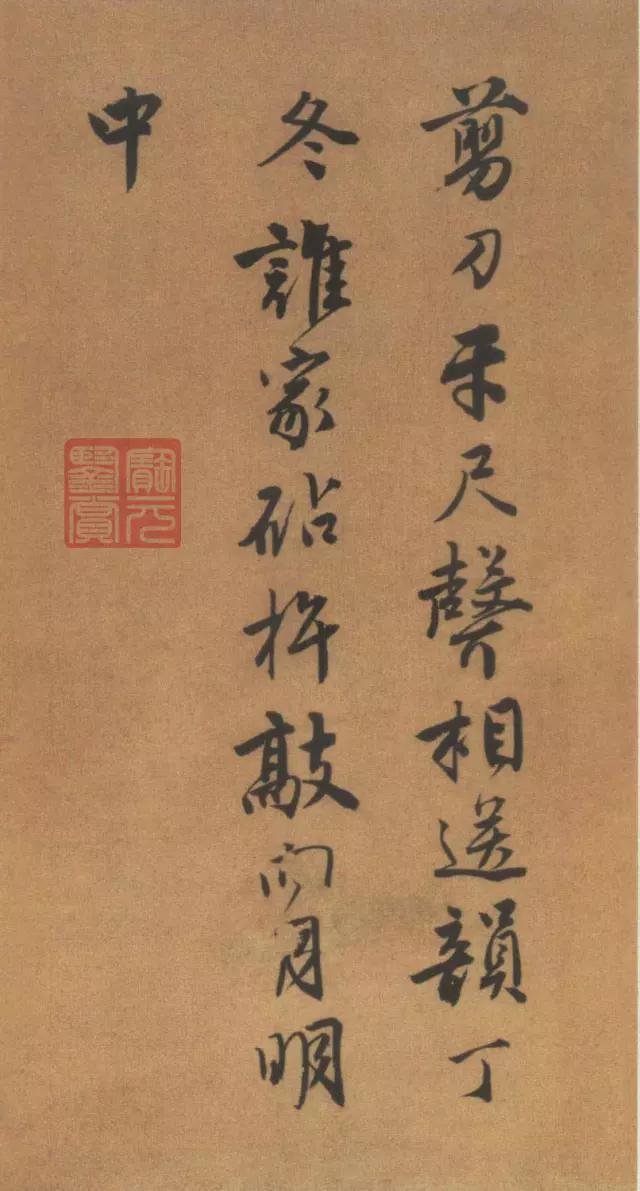 剪刀牙尺聲相送韻丁
冬誰家砧杵敲向月明
中
寶元
鑒賞